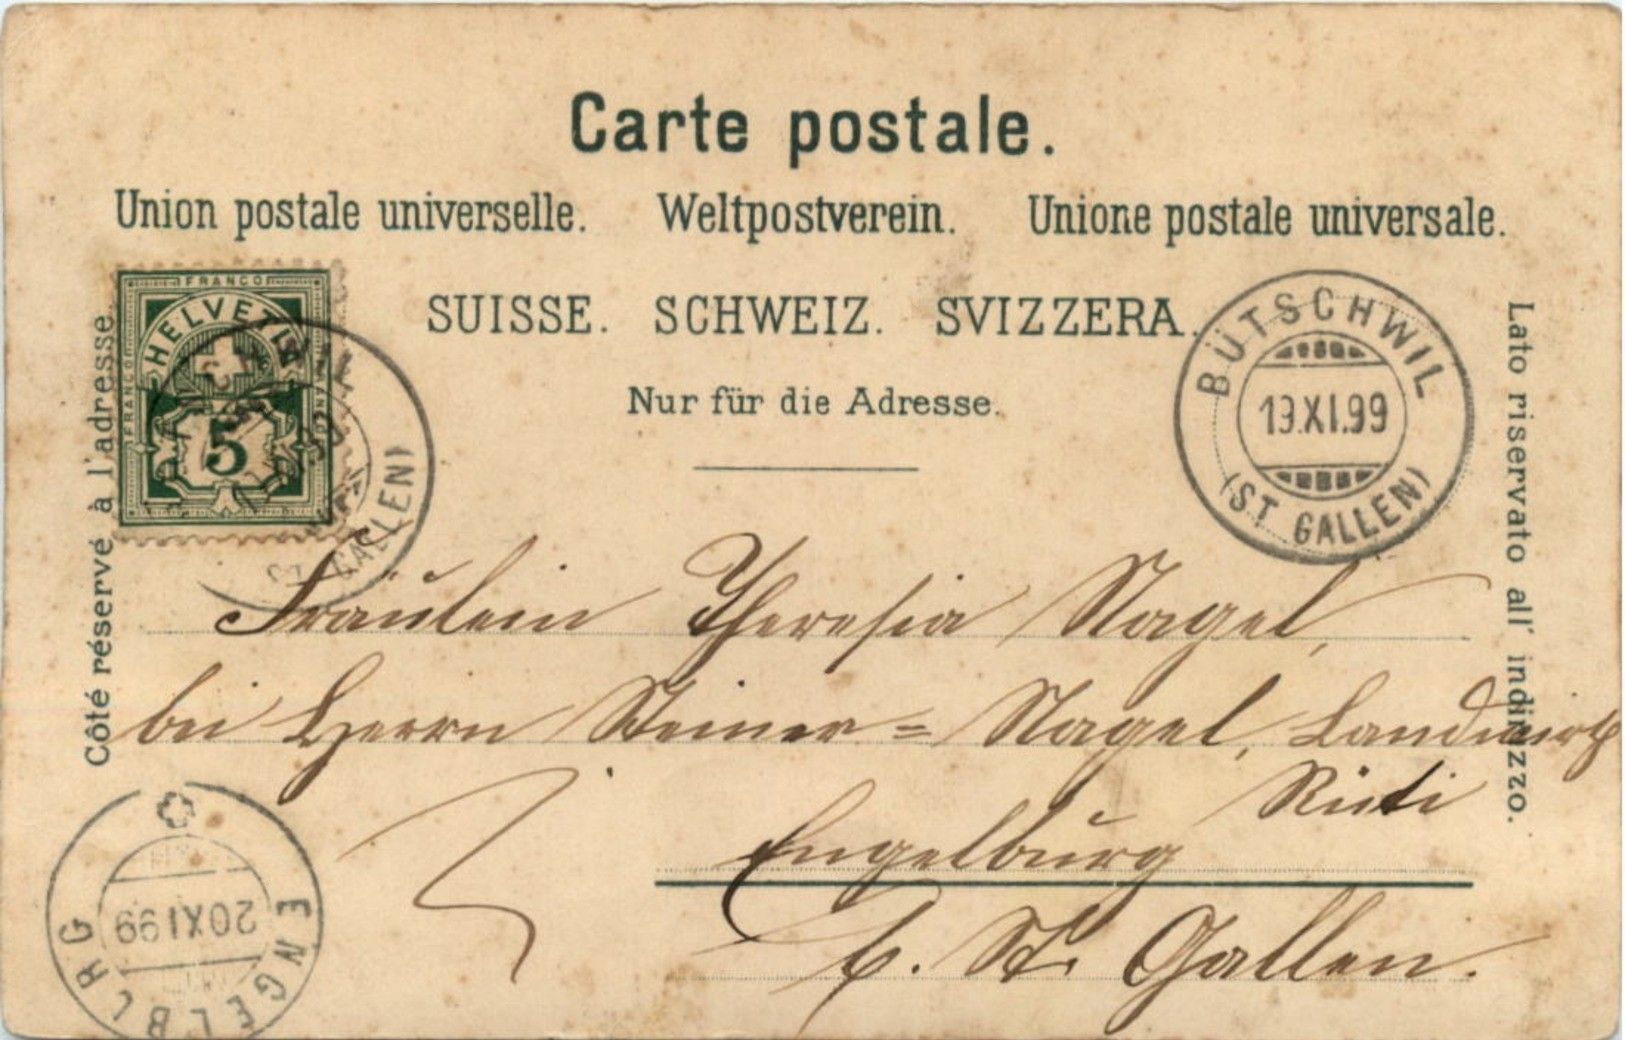 Carte postale.
Union postale universelle. Weltpostverein. Unione postale universale.
SUISSE. SCHWEIZ. SVIZZERA.
Nur für die Adresse.
Côté réservé à l'adresse.
Lato riservato all' indirizzo.
FRANCO
FRANCO
HELVETIA
5
GALLEN)
BÜTSCHWIL
19.XI.99
(ST GALLEN)
Fräulein Theresia Nagel,
bei Herrn Steiner = Nagel, Landwirth
Rüti
Engelburg
b. St. Gallen.
ENGELBURG
20XI99